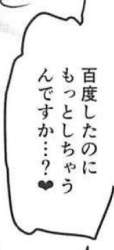 百度したのに
もっとしちゃう
んですか…?♥